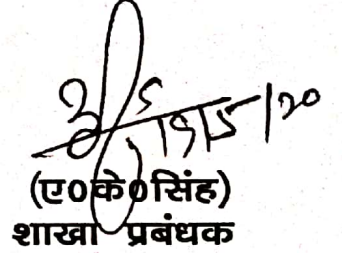 19/5/20
(ए०के०सिंह)
शाखा प्रबंधक